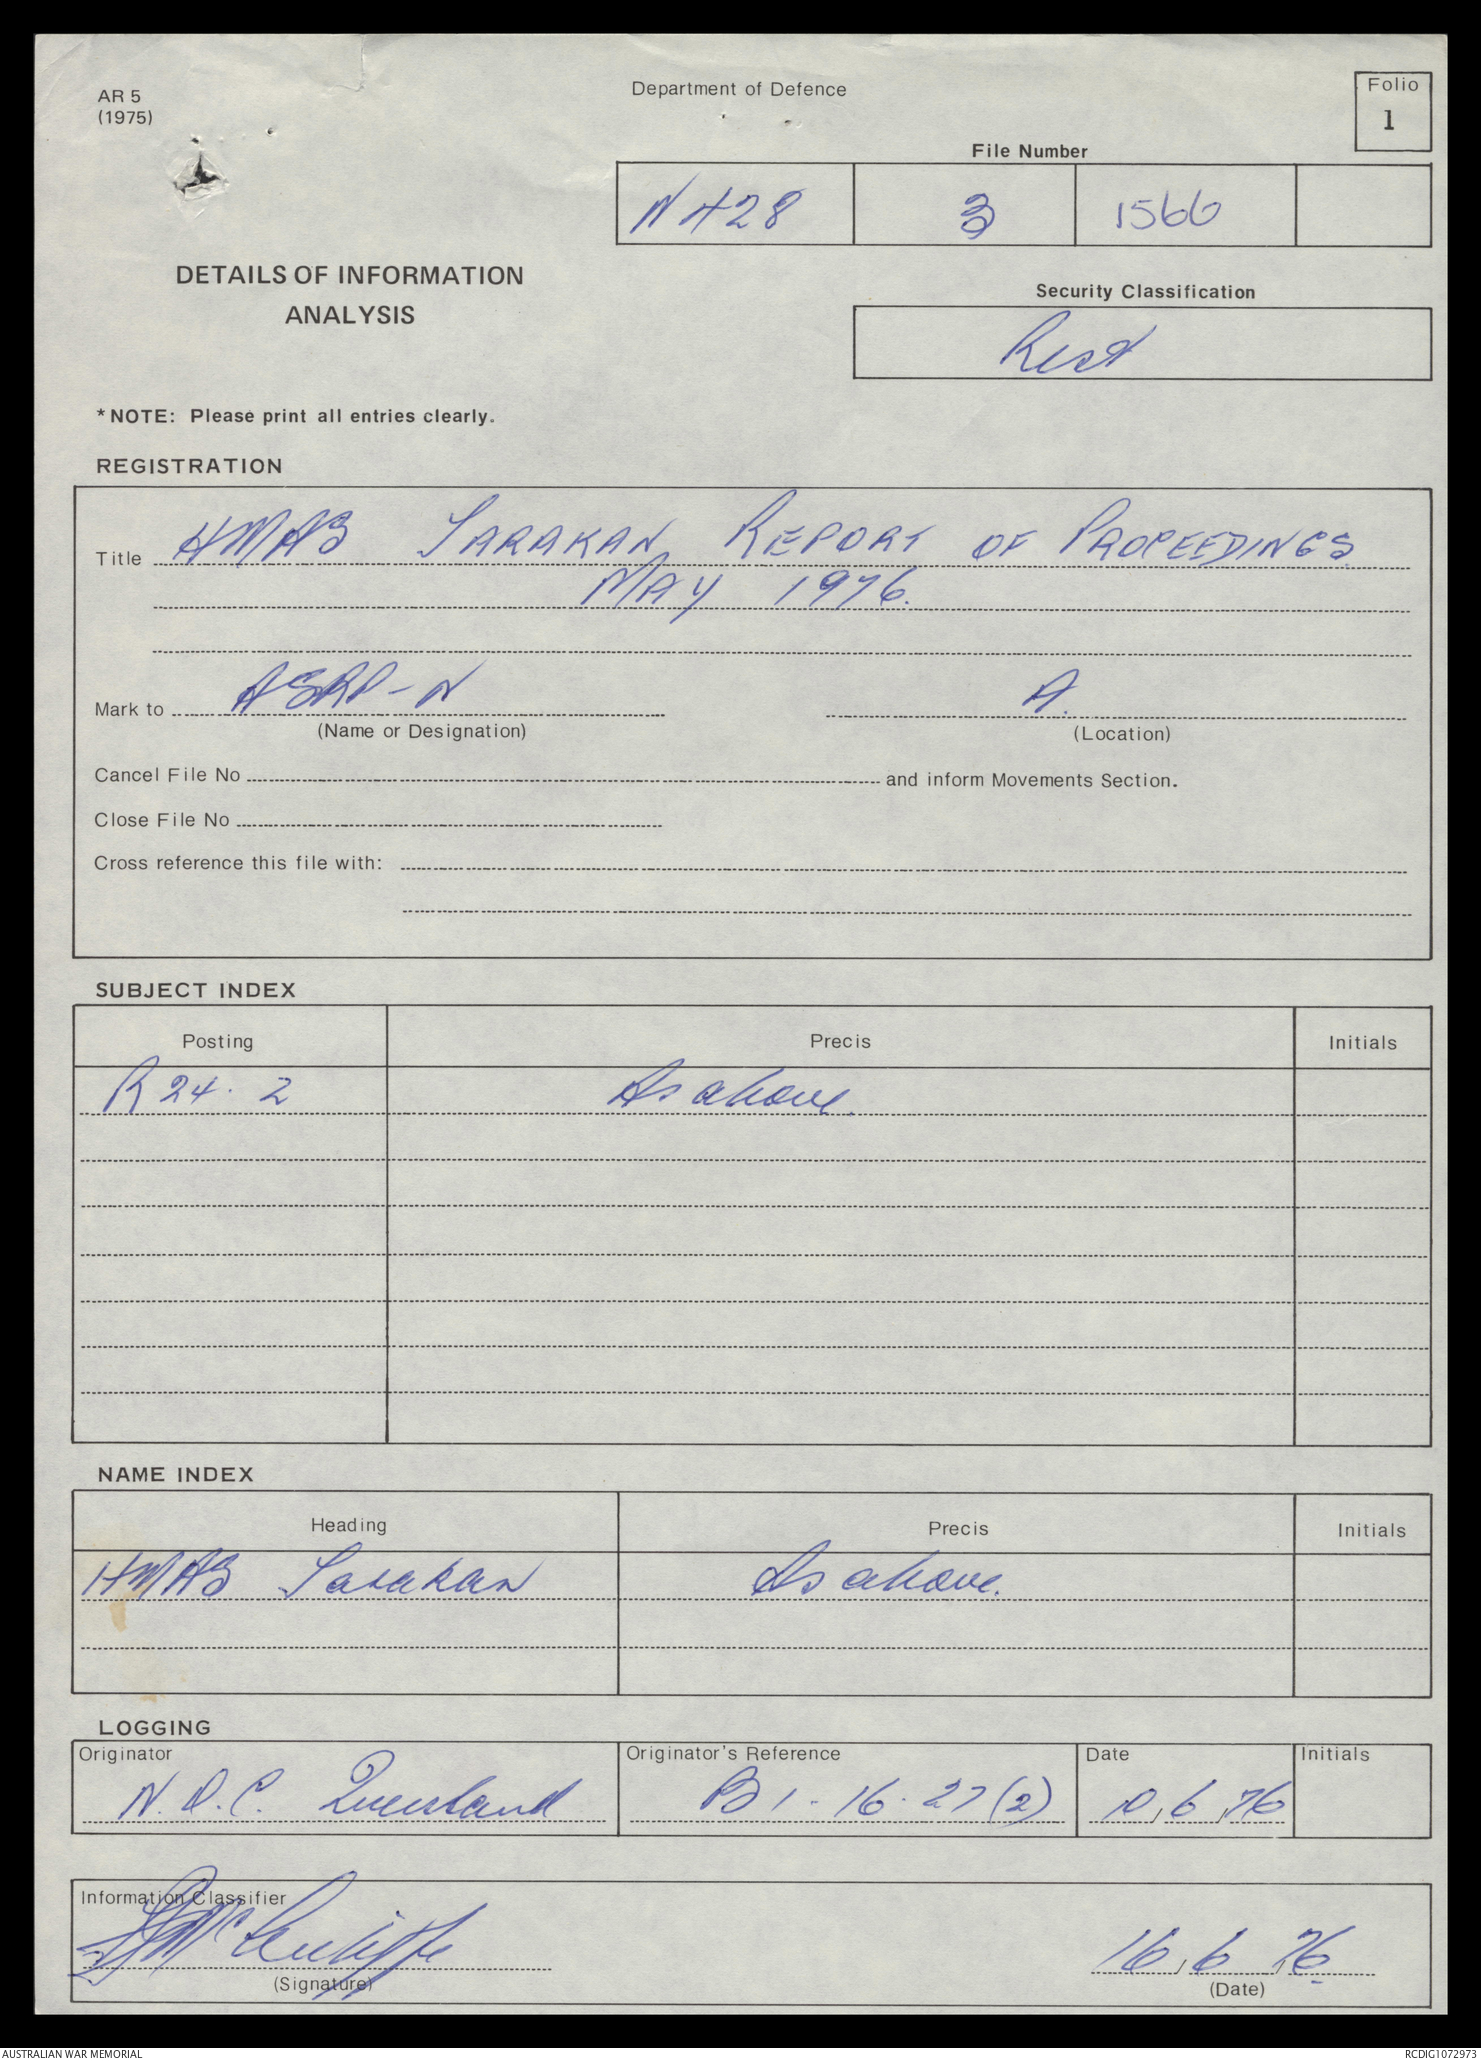 AR 5
(1975)
Department of Defence
Folio
1
File Number
N 428 3 1566
DETAILS OF INFORMATION
ANALYSIS
Security Classification
Rest
*NOTE: Please print all entries clearly.
REGISTRATION
Title HMAS TARAKAN REPORT OF PROCEEDINGS
MAY 1976.
Mark to ASRP-N A.
(Name or Designation) (Location)
Cancel File No and inform Movements Section.
Close File No
Cross reference this file with:
SUBJECT INDEX
Posting Precis Initials
R 24. 2 As above.
NAME INDEX
Heading Precis Initials
HMAS Tarakan As above.
LOGGING
Originator Originator's Reference Date Initials
N.O.C. Queensland B 1. 16. 27 (2) 10,6,76
Information Classifier
16,6,76
(Signature) (Date)
AUSTRALIAN WAR MEMORIAL RCDIG1072973